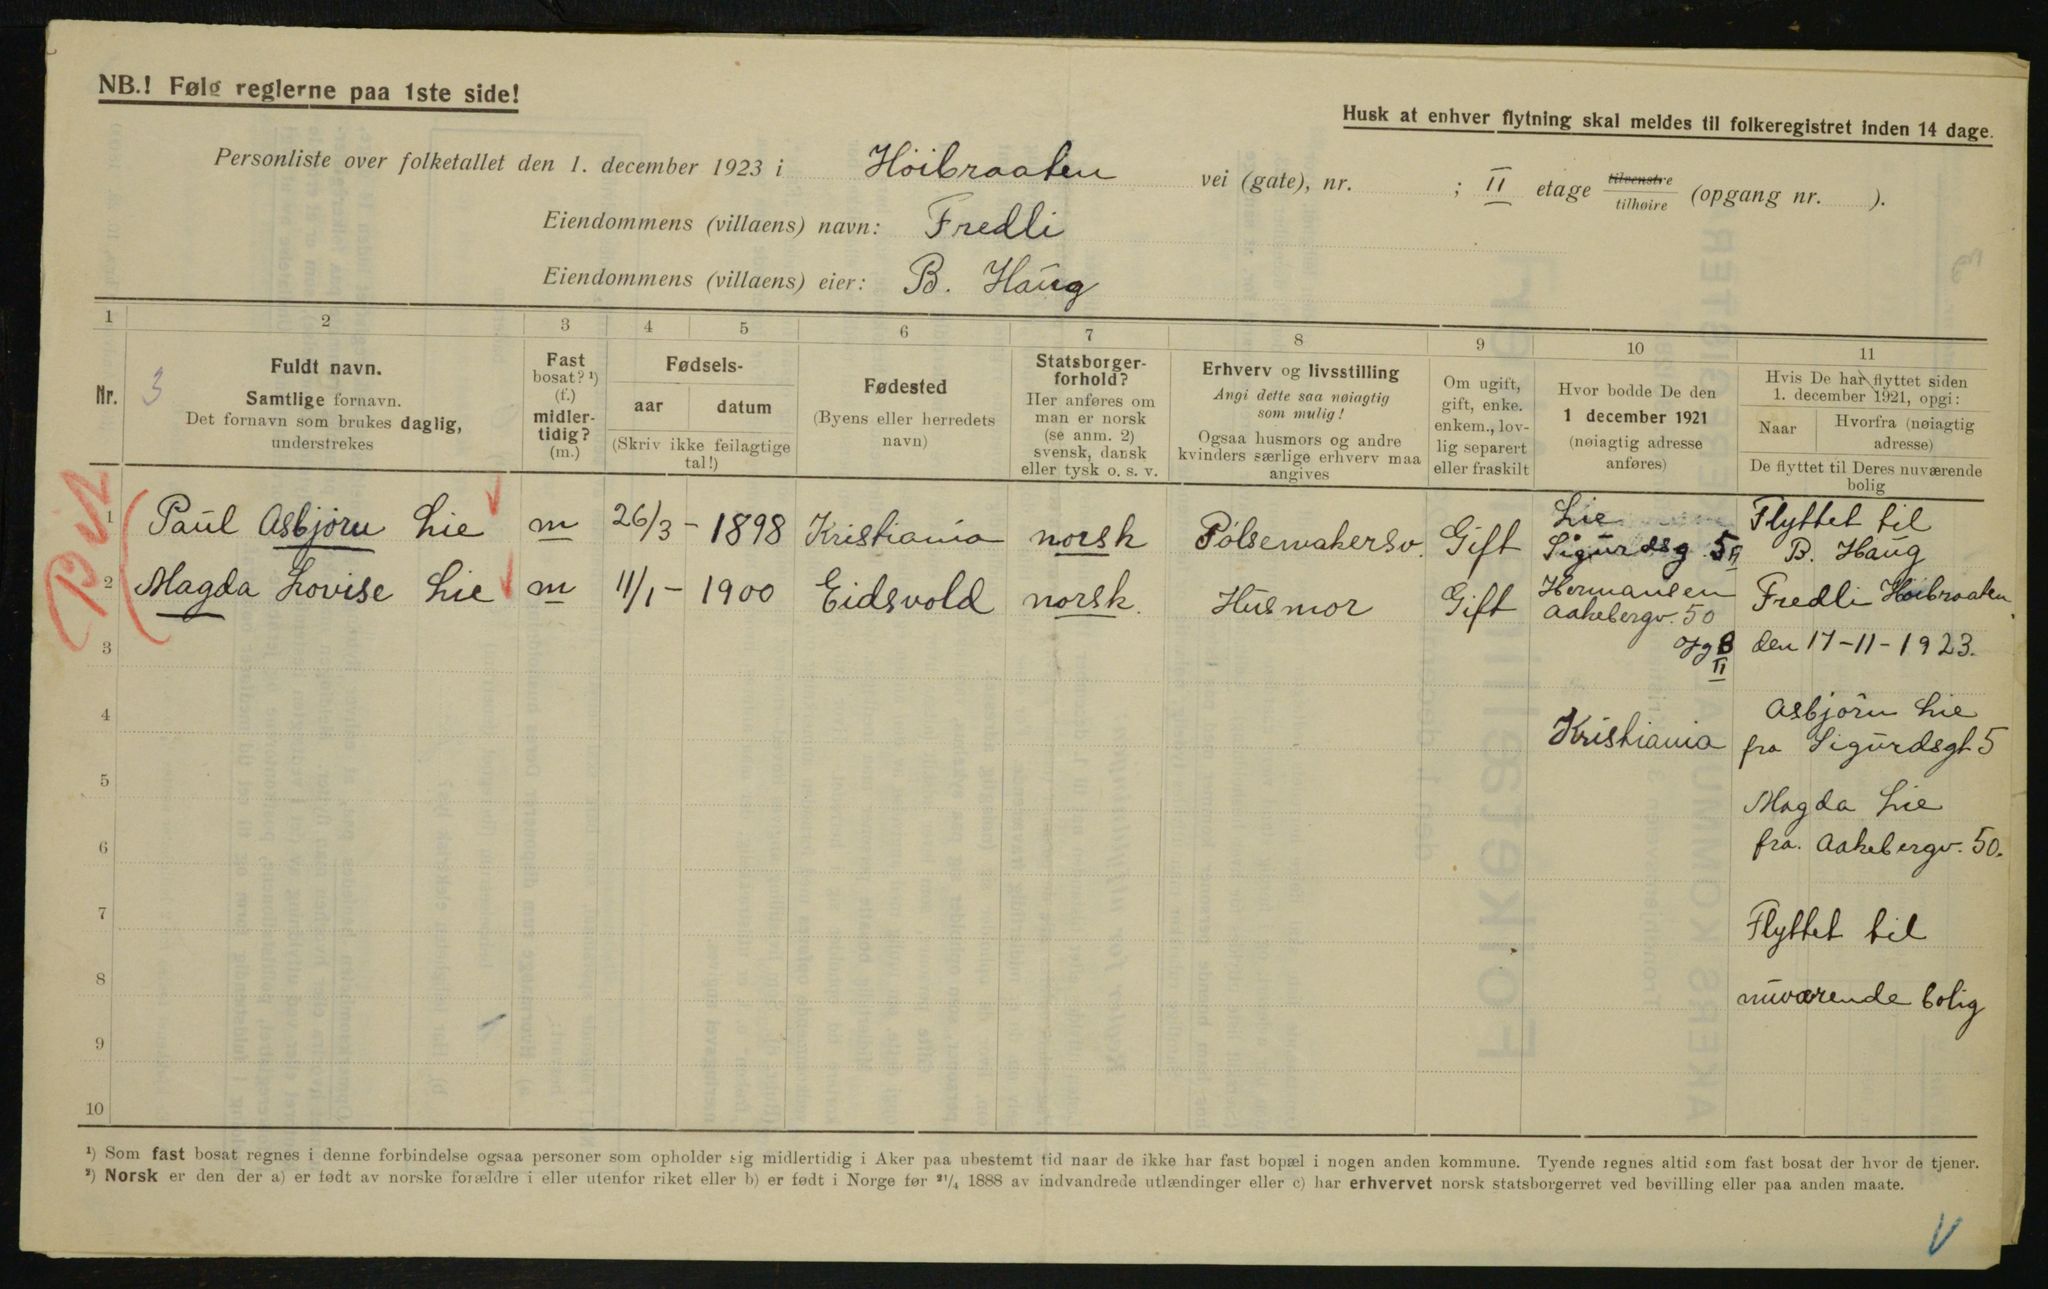 NB.! Følg reglerne paa 1ste side!
Husk at enhver flytning skal meldes til folkeregistret inden 14 dage.
Personliste over folketallet den 1. december 1923 i Höibraaten vei (gate), nr. ; II etage tilvenstre tilhøire (opgang nr. ).
Eiendommens (villaens) navn: Fredli
Eiendommens (villaens) eier: B. Haug
1 2 3 4 5 6 7 8 9 10 11
Nr.
3
Fuldt navn.
Samtlige fornavn.
Det fornavn som brukes daglig,
understrekes
Fast
bosat? ¹)
(f.)
midler-
tidig?
(m.)
Fødsels-
aar datum
(Skriv ikke feilagtige
tal!)
Fødested
(Byens eller herredets
navn)
Statsborger-
forhold?
Her anføres om
man er norsk
(se anm. 2)
svensk, dansk
eller tysk o. s. v.
Erhverv og livsstilling
Angi dette saa nøiagtig
som mulig!
Ogsaa husmors og andre
kvinders særlige erhverv maa
angives
Om ugift,
gift, enke.
enkem., lov-
lig separert
eller fraskilt
Hvor bodde De den
1 december 1921
(nøiagtig adresse
anføres)
Hvis De har flyttet siden
1. december 1921, opgi:
Naar
Hvorfra (nøiagtig
adresse)
De flyttet til Deres nuværende
bolig
1 Paul Asbjörn Lie m 26/3 - 1898 Kristiania norsk Pölsemakersv. Gift Lie
Sigurdsg. 5 II
2 Magda Lovise Lie m 11/1 - 1900 Eidsvold norsk. Husmor Gift Hermansen
Aakebergv. 50
8
II
Kristiania
Flyttet til
B. Haug
Fredli Höibraaten
den 17-11-1923.
Asbjörn Lie
fra Sigurdsgt 5
Magda Lie
fra. Aakebergv. 50.
Flyttet til
nuværende bolig
3
4
5
6
7
8
9
10
¹) Som fast bosat regnes i denne forbindelse ogsaa personer som opholder sig midlertidig i Aker paa ubestemt tid naar de ikke har fast bopæl i nogen anden kommune. Tyende regnes altid som fast bosat der hvor de tjener.
²) Norsk er den der a) er født av norske forældre i eller utenfor riket eller b) er født i Norge før ²¹/₄ 1888 av indvandrede utlændinger eller c) har erhvervet norsk statsborgerret ved bevilling eller paa anden maate.